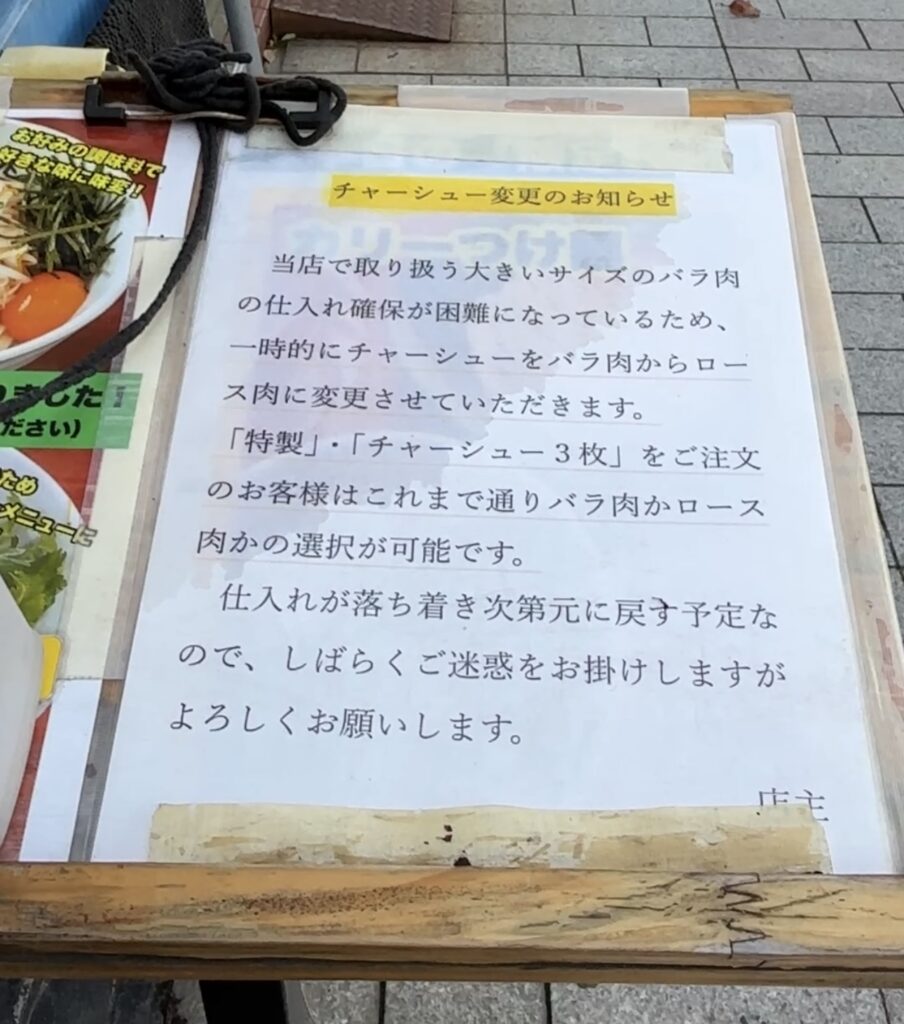 お好みの調味料で
好きな味に味変!!
チャーシュー変更のお知らせ
カリーつけ麺
当店で取り扱う大きいサイズのバラ肉
の仕入れ確保が困難になっているため、
一時的にチャーシューをバラ肉からロー
ス肉に変更させていただきます。
「特製」・「チャーシュー3枚」をご注文
のお客様はこれまで通りバラ肉かロース
肉かの選択が可能です。
仕入れが落ち着き次第元に戻す予定な
ので、しばらくご迷惑をお掛けしますが
よろしくお願いします。
店主
ました!
ださい)
ため
メニューに